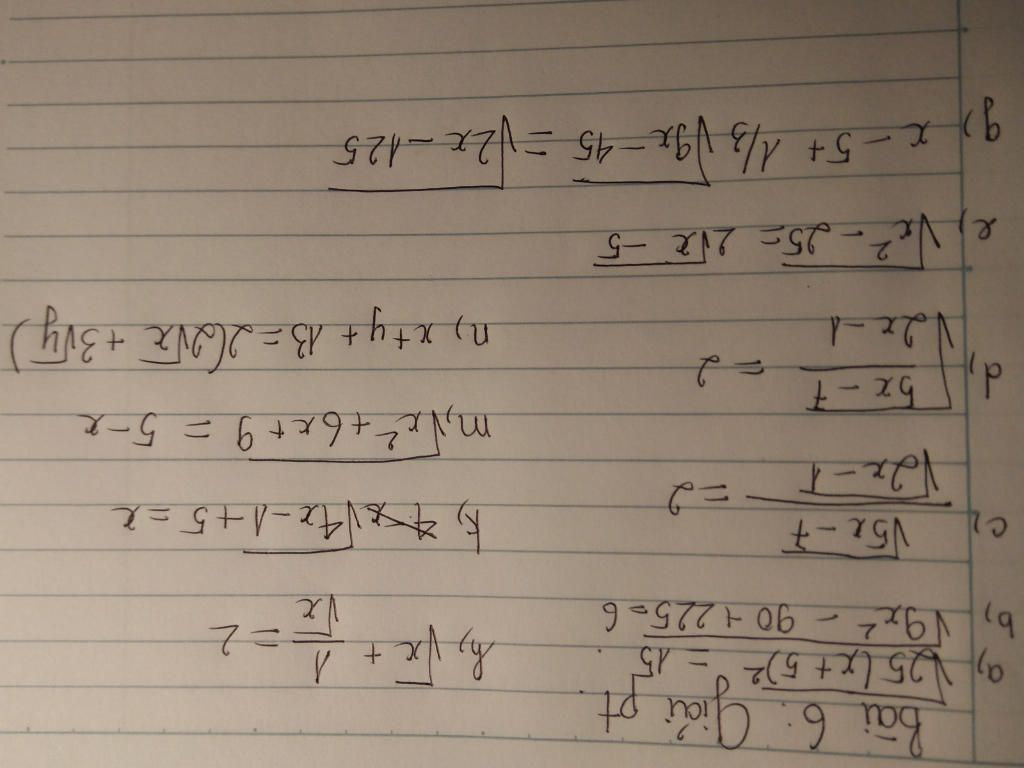 Bài 6: Giải pt.
a) √25(x+5)² = 15.
b) √9x² - 90 + 225 = 6
c) √5x - 7 / √2x - 1 = 2
d) √5x - 7 / 2x - 1 = 2
e) √x² - 25 = 2√x - 5
g) x - 5 + 1/3 √9x - 45 = √2x - 125
h) √x + 1/√x = 2
k) √4x - 1 + 5 = x
m) √x² + 6x + 9 = 5 - x
n) x + y + 13 = 2(2√x + 3√y)